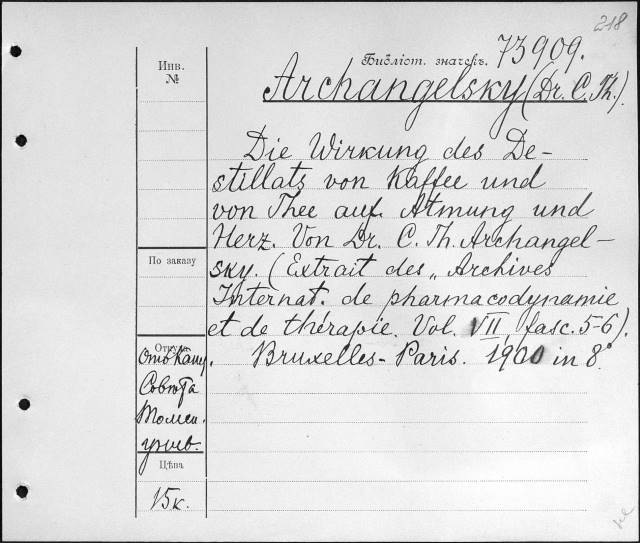 218
Библіот. значекъ. 73909.
Инв. №
Archangelsky (Dr. C. Th.).
Die Wirkung des De-
stillats von Kaffee und
von Thee auf Atmung und
Herz. Von Dr. C. Th. Archangel-
sky. (Extrait des „Archives
Internat. de pharmacodynamie
et de thérapie. Vol. VII, fasc. 5-6).
Bruxelles-Paris. 1900 in 8°
По заказу
Откуда
Отъ Канц.
Совѣта
Томск.
унив.
Цѣна
15к.